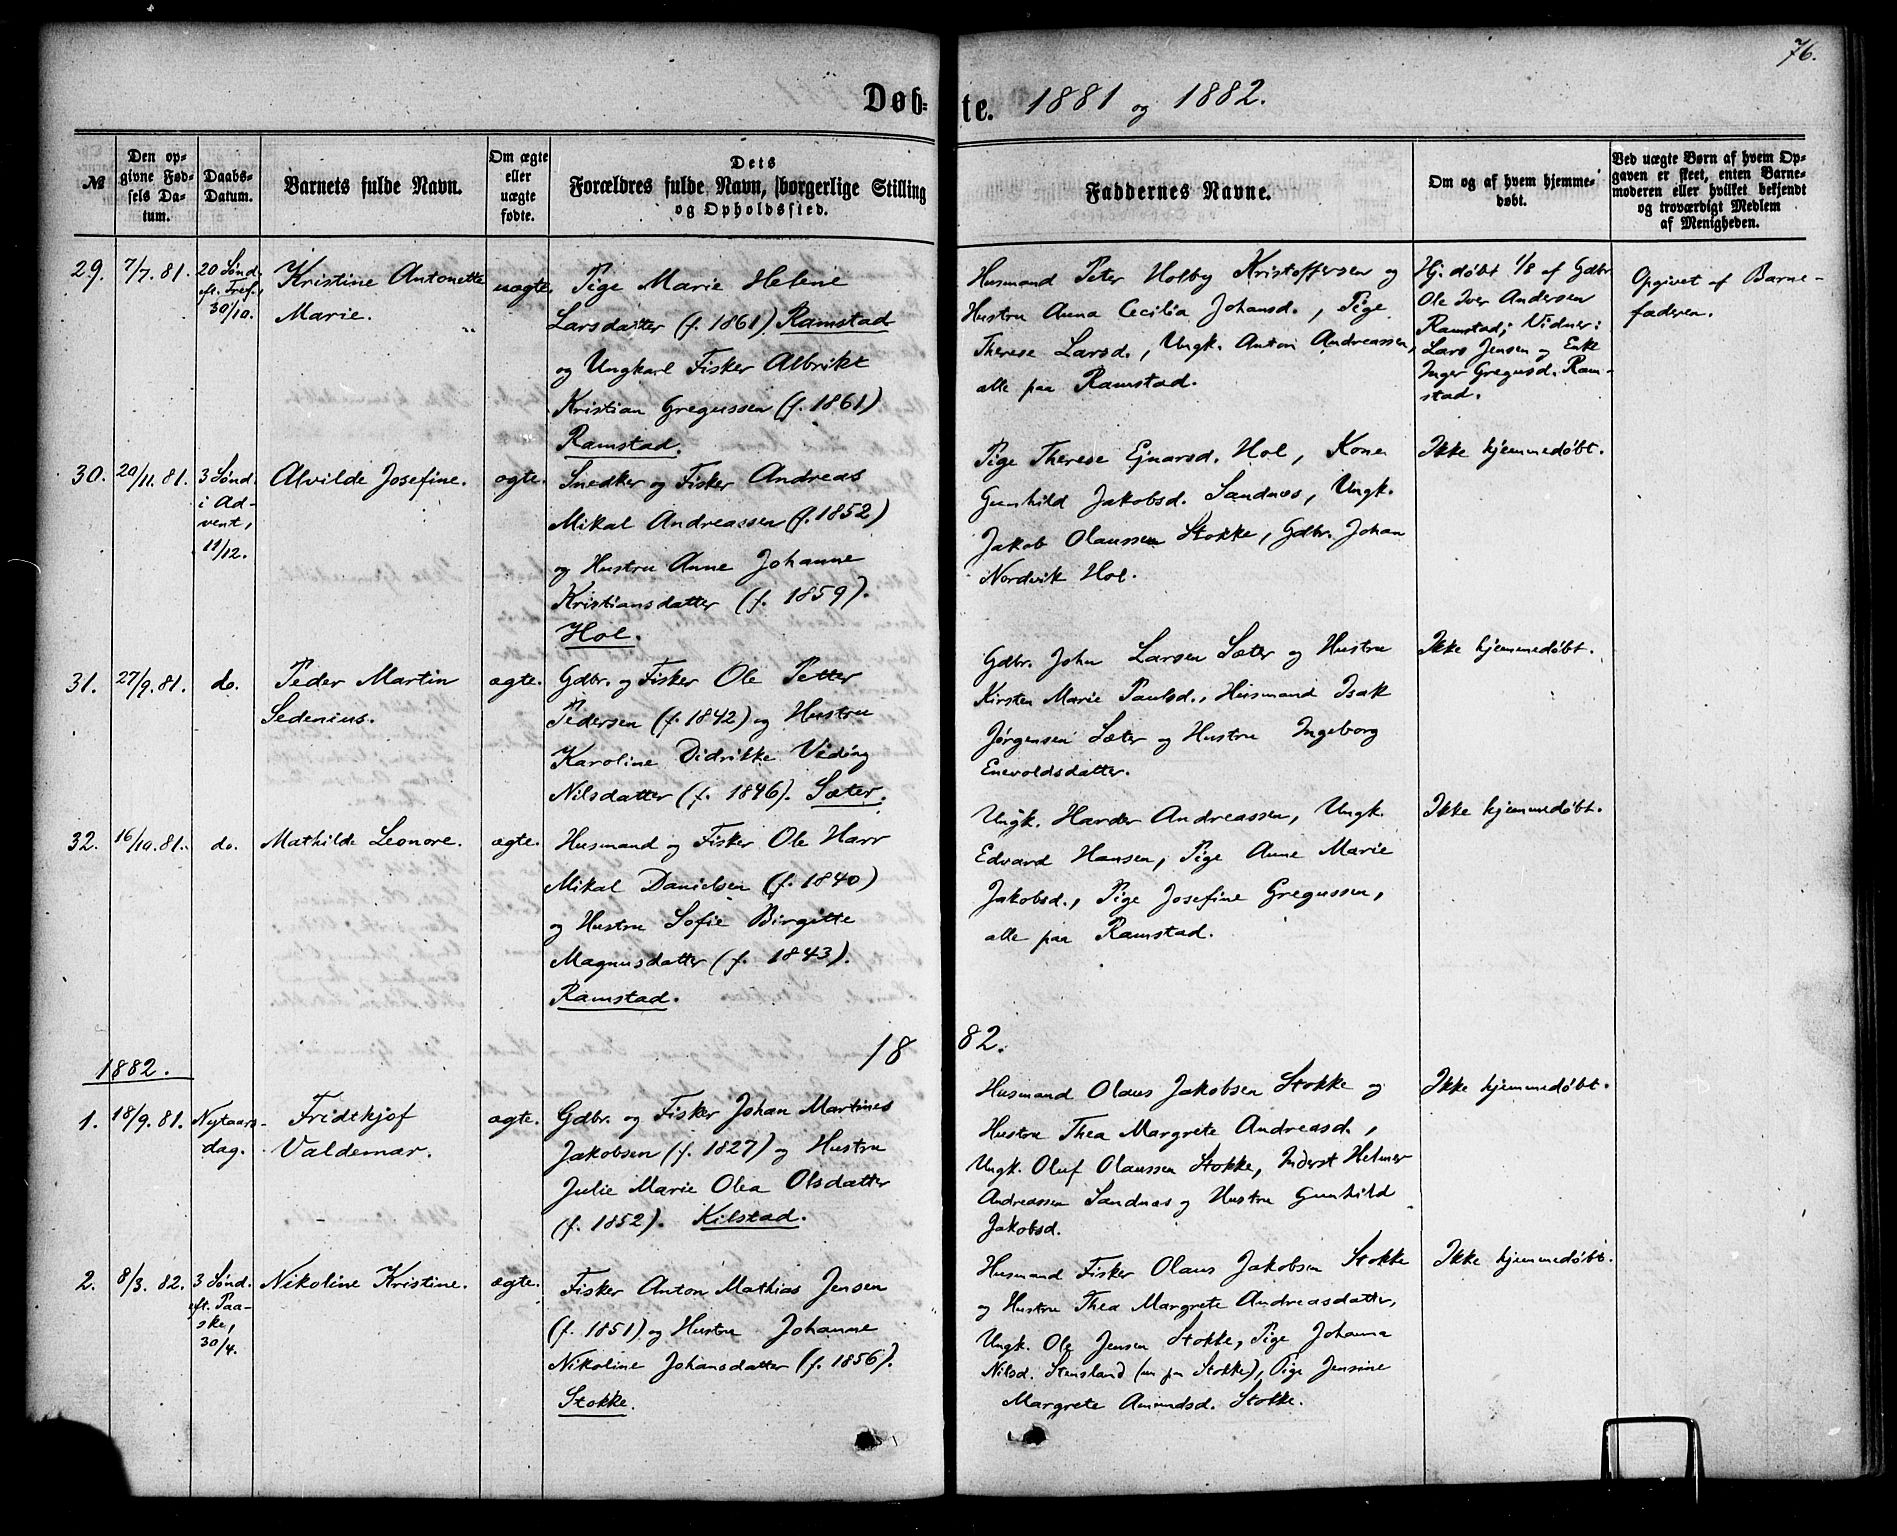 76.
Døb=
te. 1881 og 1882.
№
Den op=
givne Fød=
sels Da=
tum.
Daabs=
Datum.
Barnets fulde Navn.
Om ægte
eller
uægte
fødte.
Dets
Forældres fulde Navn, borgerlige Stilling
og Opholdssted.
Faddernes Navne.
Om og af hvem hjemme=
døbt.
Ved uægte Børn af hvem Op=
gaven er skeet, enten Barne=
moderen eller hvilket bekjendt
og troværdigt Medlem
af Menigheden.
29.
7/7. 81.
20 Sønd.
eft. Tref.,
30/10.
Kristine Antonette
Marie.
uægte.
Pige Marie Helene
Larsdatter (f. 1861) Ramstad
og Ungkarl Fisker Albrikt
Kristian Gregussen (f. 1861)
Ramstad.
Husmand Peter Holby Kristoffersen og
Hustru Anna Cecilia Johansd., Pige
Therese Larsd., Ungk. Anton Andreassen,
alle paa Ramstad.
Hj. døbt 1/8 af Gdbr.
Ole Iver Andersen
Ramstad; Vidner:
Lars Jensen og Enke
Inger Gregusd. Ram-
stad.
Opgivet af Barne-
faderen.
30.
29/11. 81.
3 Sønd.
i Ad-
vent,
11/12.
Alvilde Josefine.
ægte.
Snedker og Fisker Andreas
Mikal Andreassen (f. 1852)
og Hustru Anne Johanne
Kristiansdatter (f. 1859).
Hol.
Pige Therese Ejnarsd. Hol, Kone
Gunhild Jakobsd. Sandnes, Ungk.
Jakob Olaussen Stokke, Gdbr. Johan
Nordvik Hol.
Ikke hjemmedøbt.
31.
27/9. 81.
do.
Peder Martin
Sedenius.
ægte.
Gdbr. og Fisker Ole Petter
Pedersen (f. 1842) og Hustru
Karoline Didrikke Viding
Nilsdatter (f. 1846). Sæter.
Gdbr. John Larsen Sæter og Hustru
Kirsten Marie Paulsd., Husmand Isak
Jørgensen Sæter og Hustru Ingeborg
Enevoldsdatter.
Ikke hjemmedøbt.
32.
16/10. 81.
do.
Mathilde Leonore.
ægte.
Husmand og Fisker Ole Harr
Mikal Danielsen (f. 1840)
og Hustru Sofie Birgitte
Magnusdatter (f. 1843).
Ramstad.
Ungk. Harder Andreassen, Ungk.
Edvard Hansen, Pige Anne Marie
Jakobsd., Pige Josefine Gregussen,
alle paa Ramstad.
Ikke hjemmedøbt.
1882.
18
82.
1.
18/9. 81.
Nytaars-
dag.
Fridtkjof
Valdemar.
ægte.
Gdbr. og Fisker Johan Martines
Jakobsen (f. 1827) og Hustru
Julie Marie Olea Olsdatter
(f. 1852). Kilstad.
Husmand Olaus Jakobsen Stokke og
Hustru Thea Margrete Andreasd.,
Ungk. Oluf Olaussen Stokke, Inderst Helmer
Andreassen Sandnes og Hustru Gunhild
Jakobsd.
Ikke hjemmedøbt.
2.
8/3. 82.
3 Sønd.
eft. Paa-
ske,
30/4.
Nikoline Kristine.
ægte.
Fisker Anton Mathias Jensen
(f. 1851) og Hustru Johanne
Nikoline Johansdatter (f. 1856).
Stokke.
Husmand Fisker Olaus Jakobsen Stokke
og Hustru Thea Margrete Andreasdatter,
Ungk. Ole Jensen Stokke, Pige Johanna
Nilsd. Stensland (nu paa Stokke), Pige Jensine
Margrete Amundsd. Stokke.
Ikke hjemmedøbt.